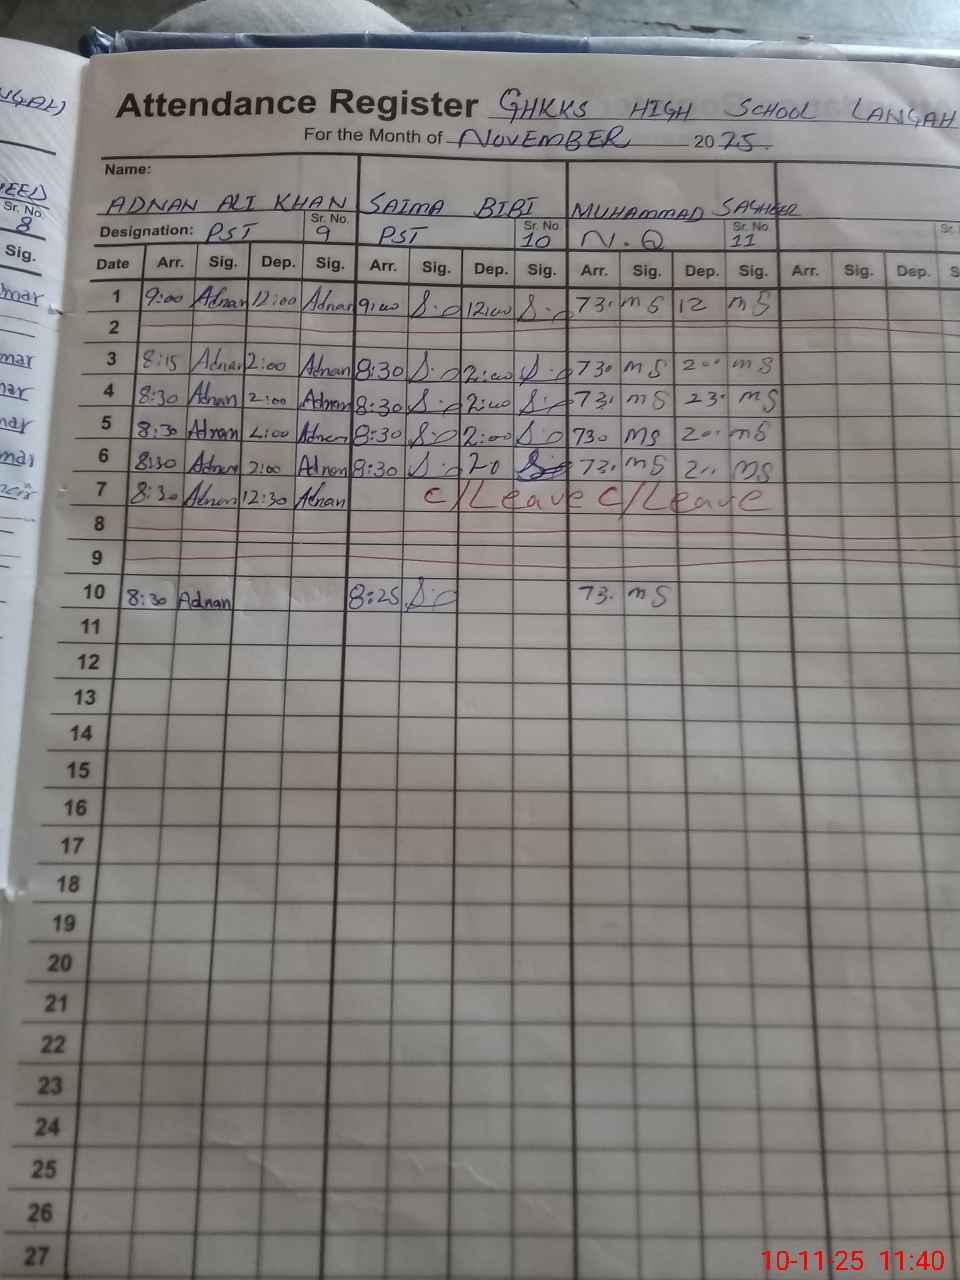 Attendance Register GHKKS HIGH SCHOOL LANGAH
For the Month of NOVEMBER 2025.
Name:
ADNAN ALI KHAN SAIMA BIBI MUHAMMAD SAGHEER
Designation: PST Sr. No. 9 PST Sr. No. 10 N.Q Sr. No. 11
Date Arr. Sig. Dep. Sig. Arr. Sig. Dep. Sig. Arr. Sig. Dep. Sig. Arr. Sig. Dep.
1 9:00 Adnan 12:00 Adnan 9:00 S. 12:00 S. 73. MS 12 MS
2
3 8:15 Adnan 2:00 Adnan 8:30 S. 2:00 S. 730 MS 200 MS
4 8:30 Adnan 2:00 Adnan 8:30 S. 2:00 S. 73. MS 23. MS
5 8:30 Adnan 2:00 Adnan 8:30 S. 2:00 S. 730 MS 200 MS
6 8:30 Adnan 2:00 Adnan 8:30 S. 20 73. MS 2.. MS
7 8:30 Adnan 12:30 Adnan C/Leave C/Leave
8
9
10 8:30 Adnan 8:25 S. 73. MS
11
12
13
14
15
16
17
18
19
20
21
22
23
24
25
26
27
EED
Sr. No.
8
Sig.
mar
mar
mar
mar
mar
10-11-25 11:40